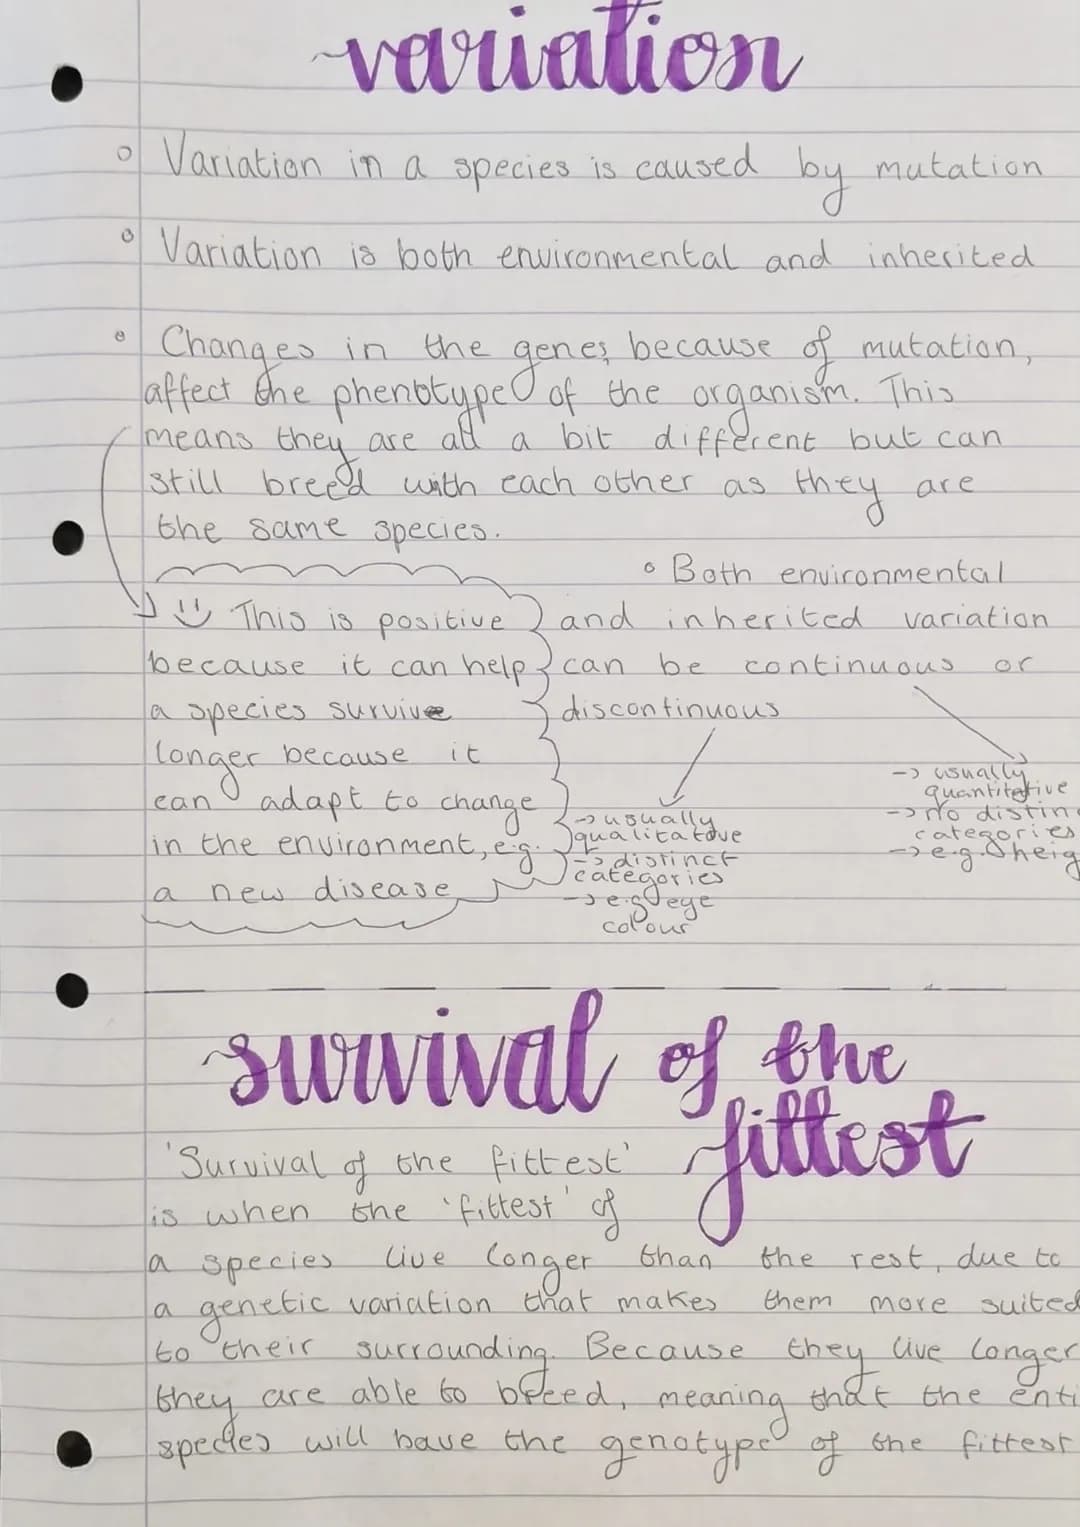 variation
Variation in a species is caused by mutation
Variation is both environmental and inherited
Changes in the genes, because of mutation,
affect the phenotype of the organism. This
means they are all a bit different but can
still breed with each other as they are
the same species.
This is positive
because it can help
a species survive
longer because it
can adapt to change
in the environment, e.g.
a new disease
Both environmental
and inherited variation
can be continuous or
discontinuous
-> usually
qualitative
-> distinct
categories
-> e.g. eye
colour
-> usually
quantitative
-> no distin
categories
-> e.g. heig
survival of the
fittest
'Survival of the fittest'
is when the 'fittest' of
a species live longer than the rest, due to
a genetic variation that makes them more suited
to their surrounding. Because they live longer
they are able to breed, meaning that the enti
species will have the genotype of the fittest